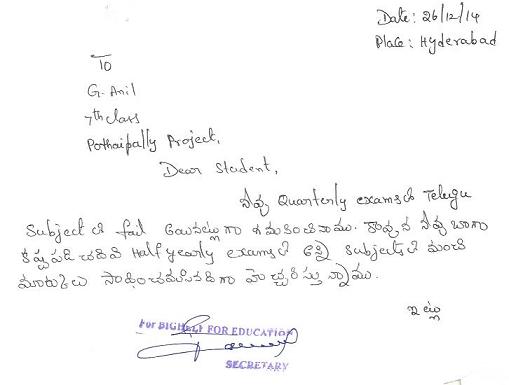 Date: 26/12/14
Place: Hyderabad
To
G. Anil
7th class
Pothaipally Project,
Dear Student,
నీవు Quarterly examsలో Telugu
Subject లో fail అయినట్లు గా గమనించినాము. కావున నీవు బాగా
కష్టపడి చదివి Half yearly examsలో అన్ని subjectsలో మంచి
మార్కులు సాధించవలసినదిగా హెచ్చరిస్తున్నాము.
ఇట్లు
For BIGHELP FOR EDUCATION
SECRETARY